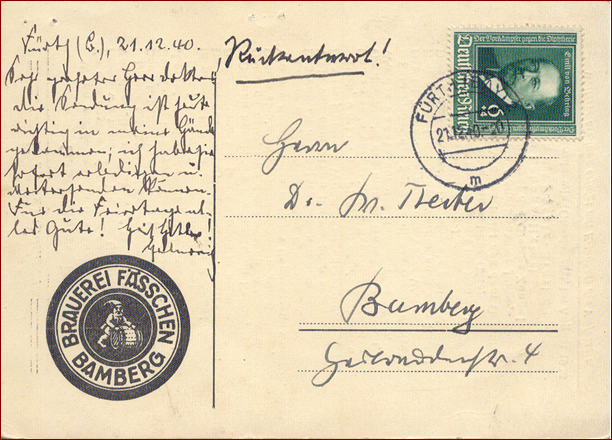 Fürth (B.), 21.12.40.
Sehr geehrter Herr Doktor,
die Sendung ist heute
richtig in meine Hände
gekommen; ich habe sie
sofort erledigen u.
weitersenden können.
Für die Feiertage al-
les Gute! Heil Hitler!
Rückantwort!
Der Vorkämpfer gegen die Diphtherie
Emil von Behring
Deutsches Reich
6+4
FÜRTH (BAY)
21.12.40
m
Herrn
Dr. W.
Bamberg
4
BRAUEREI FÄSSCHEN
BAMBERG